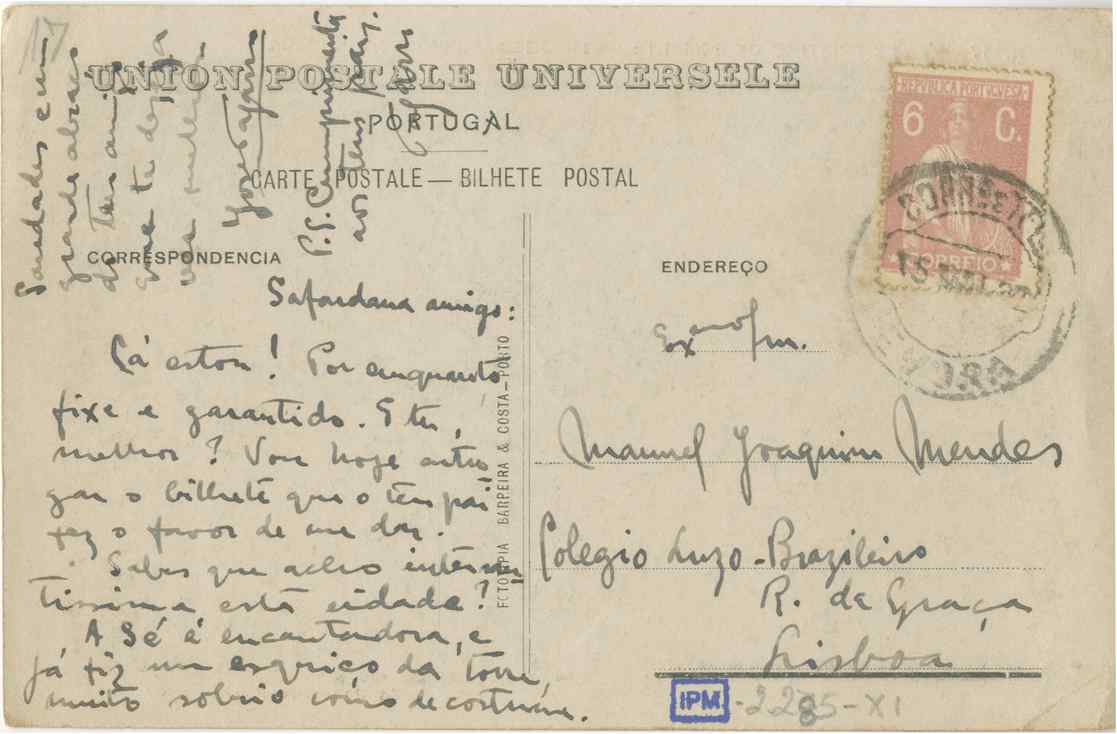 UNION POSTALE UNIVERSELLE
PORTUGAL
CARTE POSTALE — BILHETE POSTAL
CORRESPONDENCIA
amigo:
Cá estou! Por enquanto
fixe e garantido. E tu,
melhor? Vou hoje entre
gar o bilhete que o teu pai
fez o favor de me dar.
Sabes que acho interessan
tissima esta cidade?
A Sé é encantadora, e
já fiz um esquiço da torre,
muito sobrio como de costume.
Saudades e um
grande abraço
do teu amigo
que te deseja
P.S. Cumprimenta
aos teus pais.
FOTOTIPIA BARREIRA & COSTA — PORTO
ENDEREÇO
Exmo Snr.
Manuel Joaquim Mendes
Colegio Luzo-Brazileiro
R. da Graça
Lisboa
REPUBLICA PORTUGUESA
6 C.
CORREIO
IPM
-2285-XI